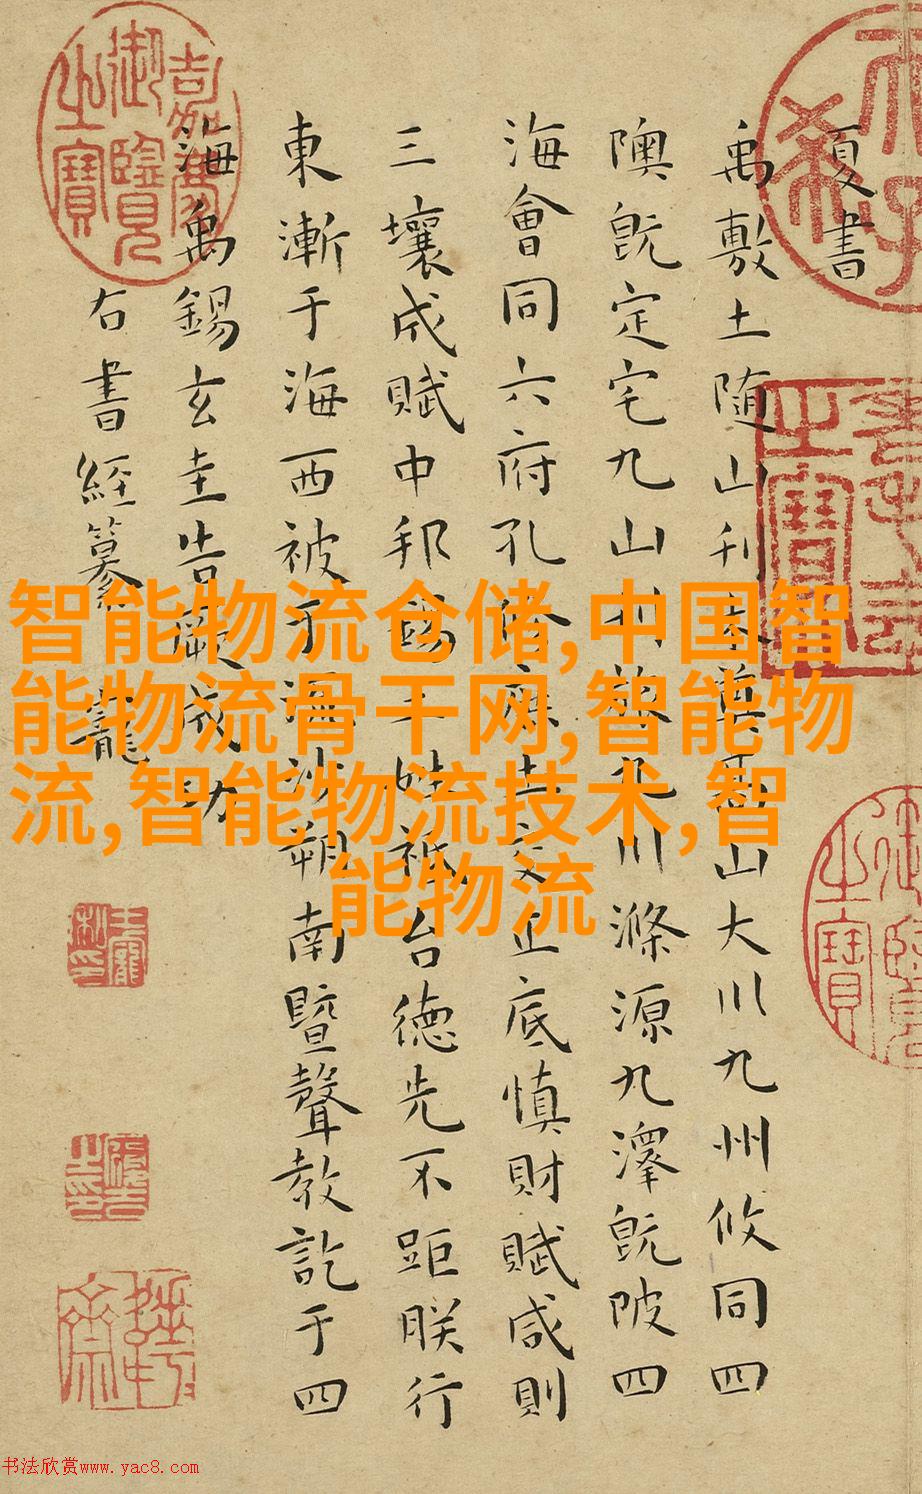 夏書
禹敷土随山刊木奠高山大川九州攸同四
隩既定宅九山刊旅九川滌源九澤既陂四
海會同六府孔修庶土交正底慎財賦咸則
三壤成賦中邦錫土姓祗台德先不距朕行
東漸于海西被于流沙朔南暨聲教訖于四
海禹錫玄圭告厥成功
右書經纂 寵
嘉慶御覽之寶
王寵私印
智能物流仓储,中国智
能物流骨干网,智能物
流,智能物流技术,智
能物流
书法欣赏www.yac8.com